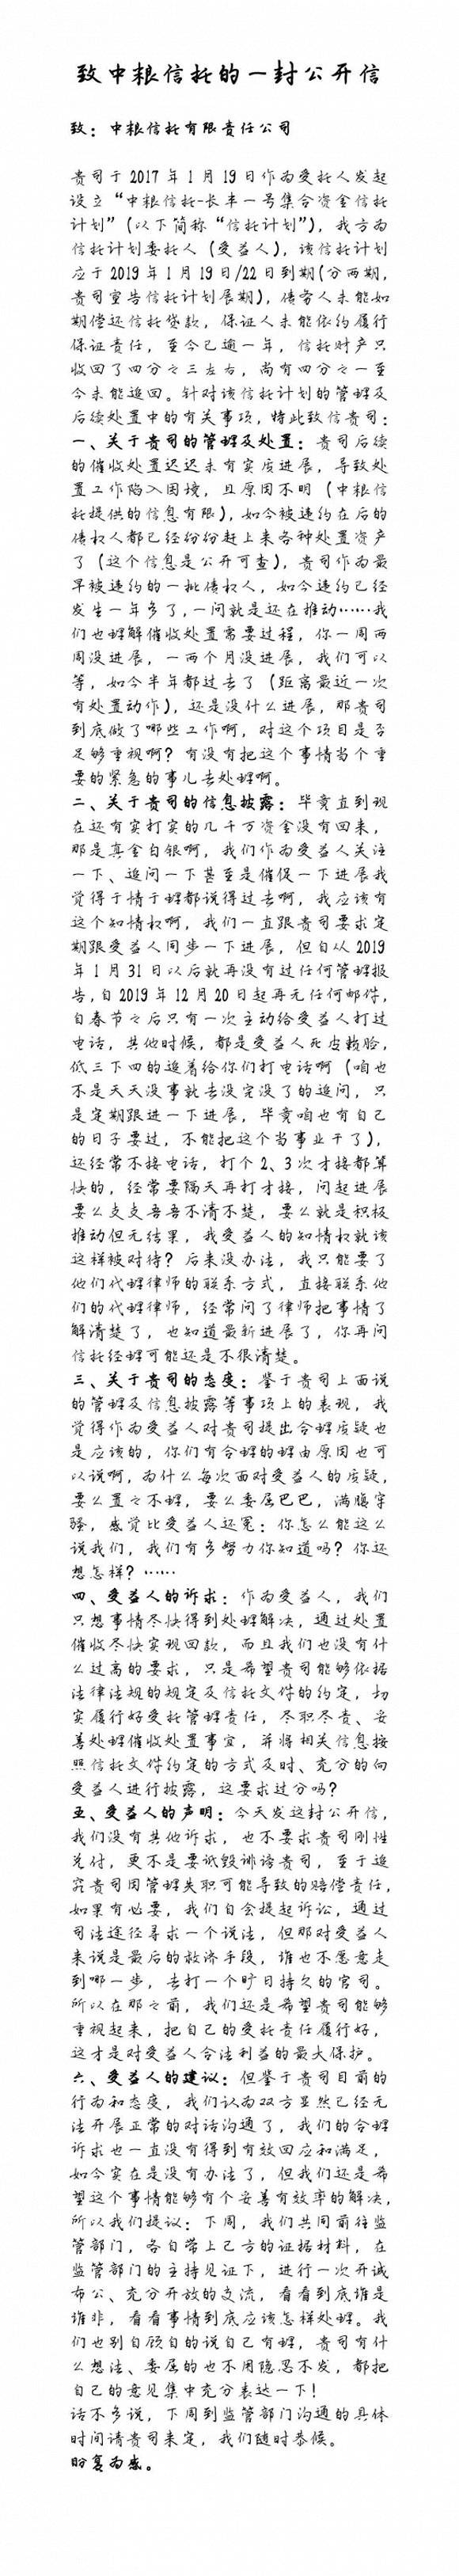 致中粮信托的一封公开信
致：中粮信托有限责任公司
贵司于 2017 年 1 月 19 日作为受托人发起
设立“中粮信托-长丰一号集合资金信托
计划”（以下简称“信托计划”），我方为
信托计划委托人（受益人），该信托计划
应于 2019 年 1 月 19 日/22 日到期（分两期，
贵司宣告信托计划展期），债务人未能如
期偿还信托贷款，保证人未能依约履行
保证责任，至今已逾一年，信托财产只
收回了四分之三左右，尚有四分之一至
今未能追回。针对该信托计划的管理及
后续处置中的有关事项，特此致信贵司：
一、关于贵司的管理及处置：贵司后续
的催收处置迟迟未有实质进展，导致处
置工作陷入困境，且原因不明（中粮信
托提供的信息有限），如今被违约在后的
债权人都已经纷纷赶上来各种处置资产
了（这个信息是公开可查），贵司作为最
早被违约的一批债权人，如今违约已经
发生一年多了，一问就是还在推动……我
们也理解催收处置需要过程，你一周两
周没进展，一两个月没进展，我们可以
等，如今半年都过去了（距离最近一次
有处置动作），还是没什么进展，那贵司
到底做了哪些工作啊，对这个项目是否
足够重视啊？有没有把这个事情当个重
要的紧急的事儿去处理啊。
二、关于贵司的信息披露：毕竟直到现
在还有实打实的几千万资金没有回来，
那是真金白银啊，我们作为受益人关注
一下、追问一下甚至是催促一下进展我
觉得于情于理都说得过去啊，我应该有
这个知情权啊，我们一直跟贵司要求定
期跟受益人同步一下进展，但自从 2019
年 1 月 31 日以后就再没有过任何管理报
告，自 2019 年 12 月 20 日起再无任何邮件，
自春节之后只有一次主动给受益人打过
电话，其他时候，都是受益人死皮赖脸，
低三下四的追着给你们打电话啊（咱也
不是天天没事就去没完没了的追问，只
是定期跟进一下进展，毕竟咱也有自己
的日子要过，不能把这个当事业干了），
还经常不接电话，打个 2、3 次才接都算
快的，经常要隔天再打才接，问起进展
要么支支吾吾不清不楚，要么就是积极
推动但无结果，我受益人的知情权就该
这样被对待？后来没办法，我只能要了
他们代理律师的联系方式，直接联系他
们的代理律师，经常问了律师把事情了
解清楚了，也知道最新进展了，你再问
信托经理可能还是不很清楚。
三、关于贵司的态度：鉴于贵司上面说
的管理及信息披露等事项上的表现，我
觉得作为受益人对贵司提出合理质疑也
是应该的，你们有合理的理由原因也可
以说啊，为什么每次面对受益人的质疑，
要么置之不理，要么委屈巴巴，满腹牢
骚，感觉比受益人还冤：你怎么能这么
说我们，我们有多努力你知道吗？你还
想怎样？……
四、受益人的诉求：作为受益人，我们
只想事情尽快得到处理解决，通过处置
催收尽快实现回款，而且我们也没有什
么过高的要求，只是希望贵司能够依据
法律法规的规定及信托文件的约定，切
实履行好受托管理责任，尽职尽责、妥
善处理催收处置事宜，并将相关信息按
照信托文件约定的方式及时、充分的向
受益人进行披露，这要求过分吗？
五、受益人的声明：今天发这封公开信，
我们没有其他诉求，也不要求贵司刚性
兑付，更不是要诋毁诽谤贵司，至于追
究贵司因管理失职可能导致的赔偿责任，
如果有必要，我们自会提起诉讼，通过
司法途径寻求一个说法，但那对受益人
来说是最后的救济手段，谁也不愿意走
到哪一步，去打一个旷日持久的官司。
所以在那之前，我们还是希望贵司能够
重视起来，把自己的受托责任履行好，
这才是对受益人合法利益的最大保护。
六、受益人的建议：但鉴于贵司目前的
行为和态度，我们认为双方显然已经无
法开展正常的对话沟通了，我们的合理
诉求也一直没有得到有效回应和满足，
如今实在是没有办法了，但我们还是希
望这个事情能够有个妥善有效率的解决，
所以我们提议：下周，我们共同前往监
管部门，各自带上己方的证据材料，在
监管部门的主持见证下，进行一次开诚
布公、充分开放的交流，看看到底谁是
谁非，看看事情到底应该怎样处理。我
们也别自顾自的说自己有理，贵司有什
么想法、委屈的也不用隐忍不发，都把
自己的意见集中充分表达一下！
话不多说，下周到监管部门沟通的具体
时间请贵司来定，我们随时恭候。
盼复为感。